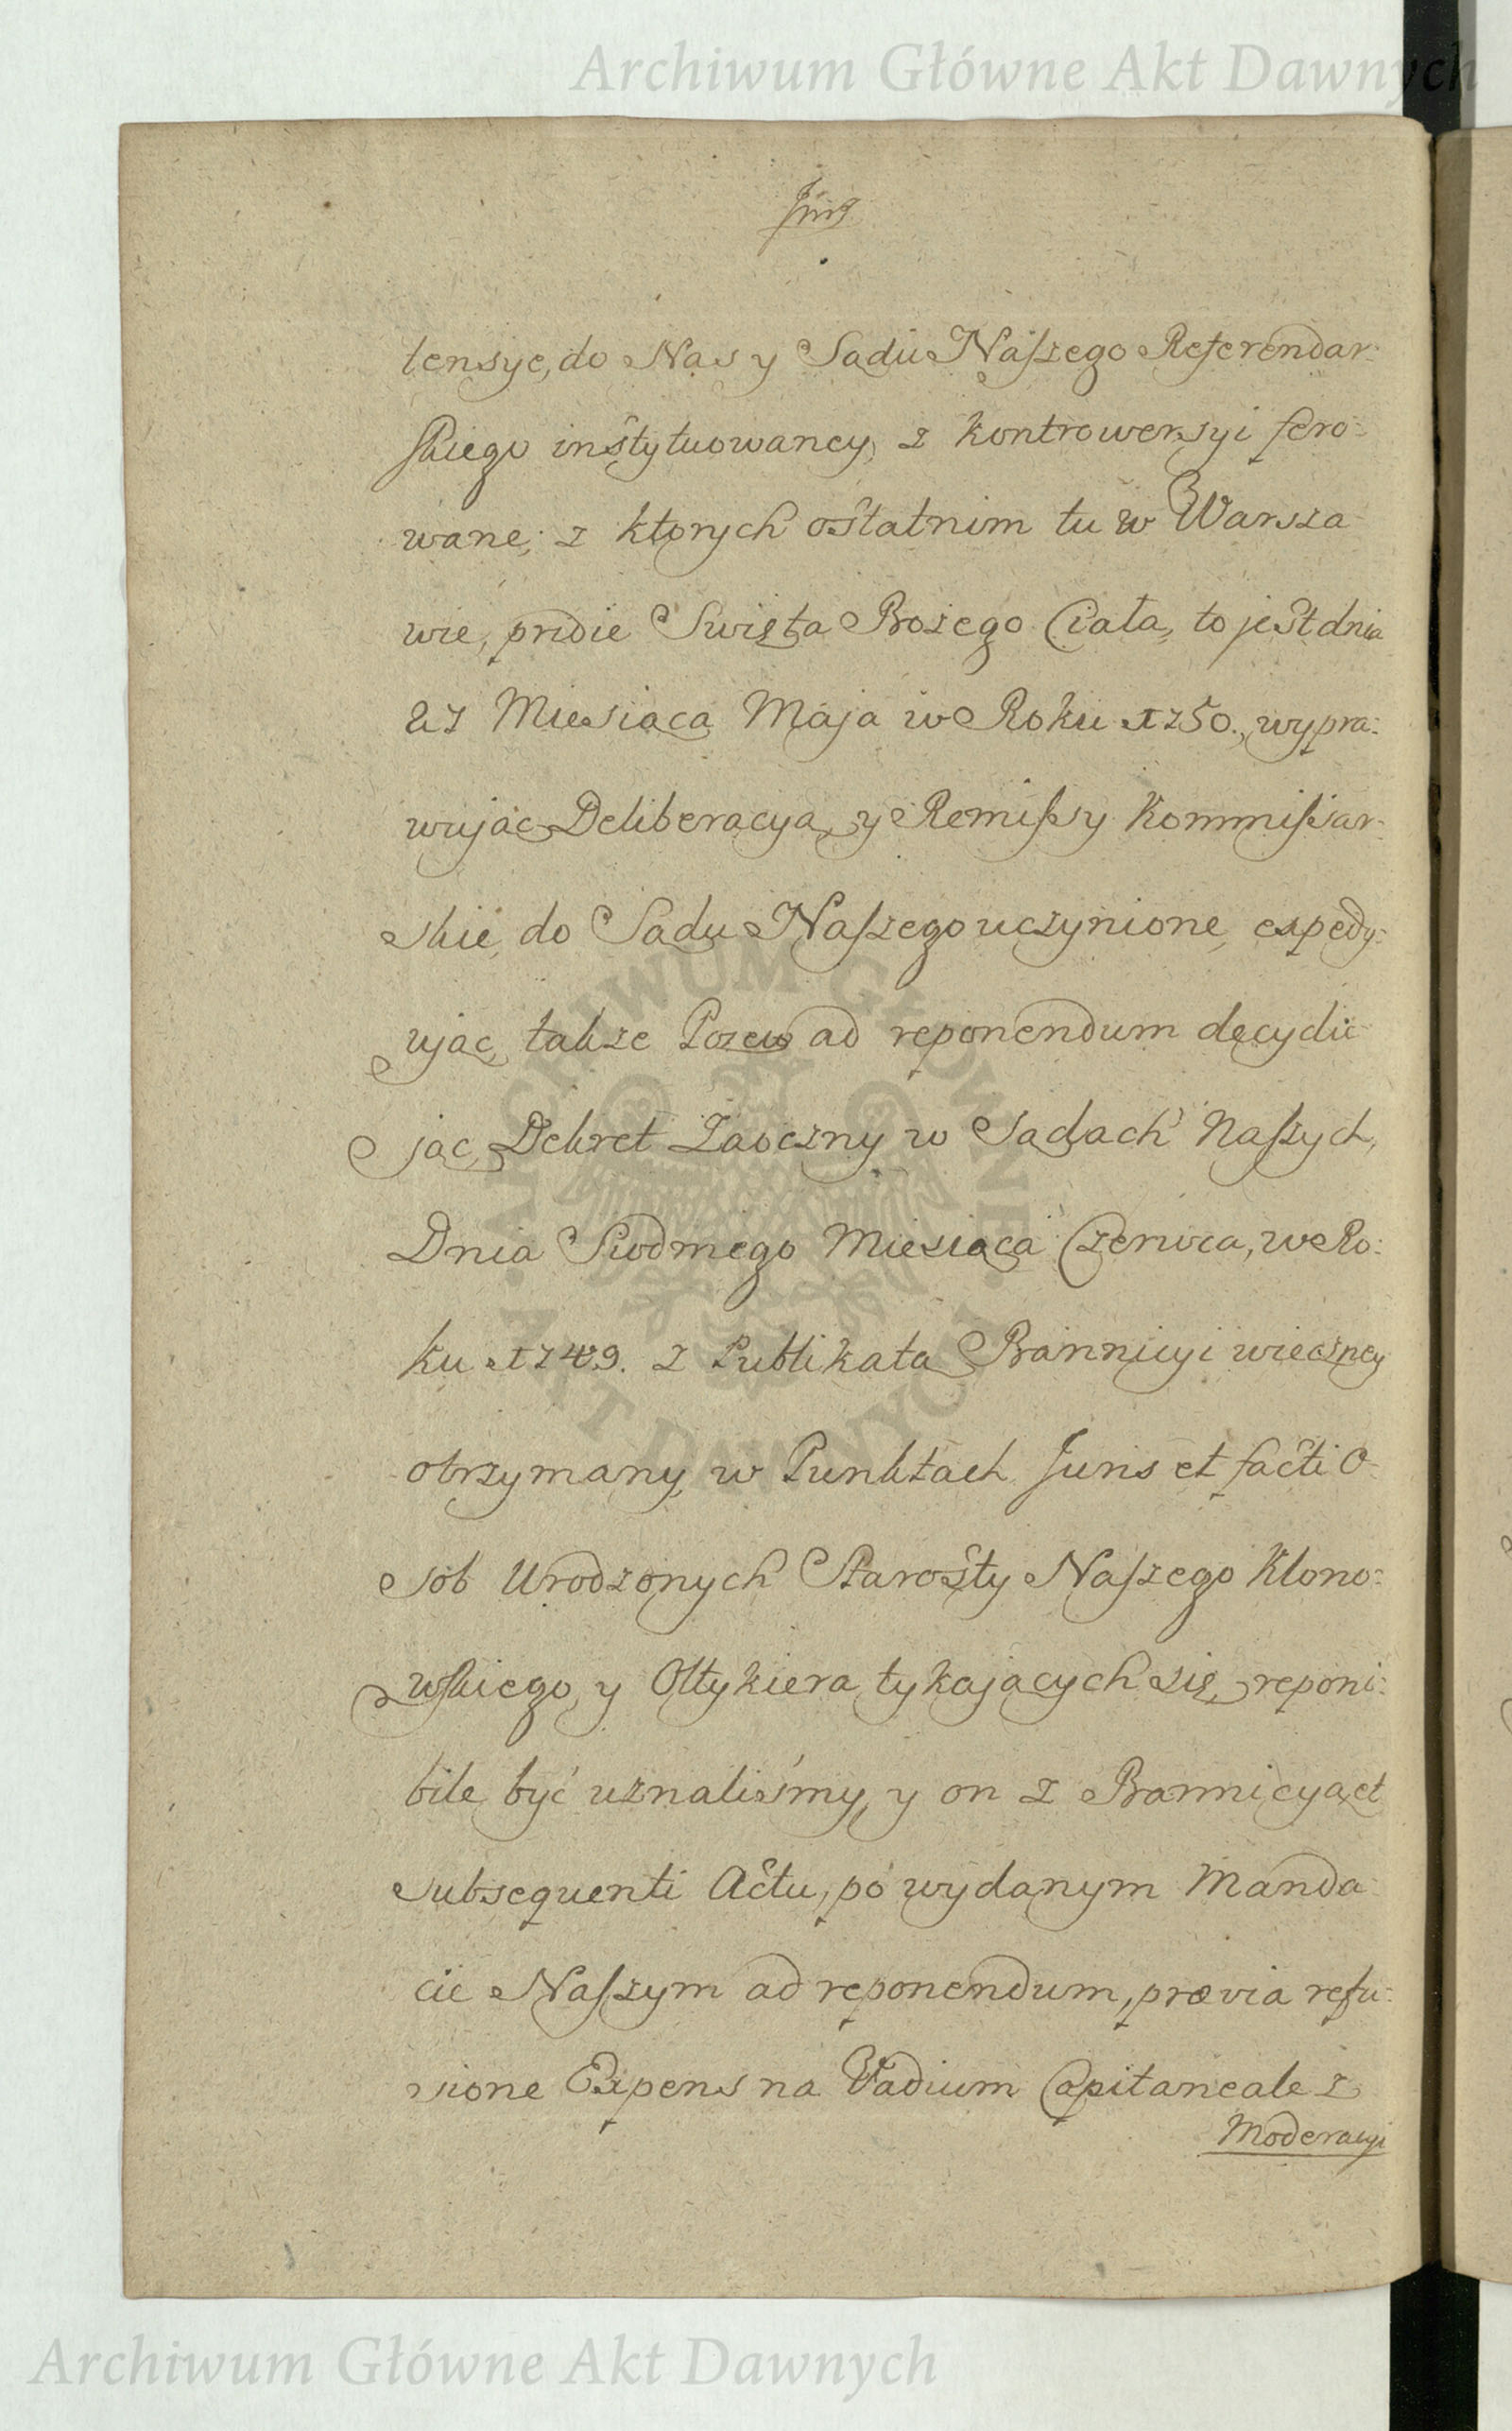 Archiwum Główne Akt Dawnych
tensye, do Nas y Sądu Naszego Referendar:
skiego instytuowancy, z kontrowersyi fero:
wane; z ktorych ostatnim tu w Warsza
wie, pridie Swięta Bożego Ciała, to jest dnia
27 Miesiąca Maja w Roku 1750., wypra:
wując Deliberacyą, y Remissy Kommissar:
skie, do Sądu Naszego uczynione, expedy:
ując, także Pozew ad reponendum decydu
jąc, Dekret Zaoczny w Sądach Naszych,
Dnia Siodmego Miesiąca Czerwca, w Ro:
ku 1749. z Publikatą Bannicyi wieczney
otrzymany, w Punktach Juris et facti O
sob Urodzonych Starosty Naszego Klono:
wskiego, y Oltykiera tykających się, reponi:
bile być uznaliśmy, y on z Bannicyą et
subsequenti Actu, po wydanym Manda
cie Naszym ad reponendum, prævia refu:
sione Expens na Vadium Capitaneale z
Moderacyi
ARCHIWUM GŁÓWNE AKT DAWNYCH
Archiwum Główne Akt Dawnych